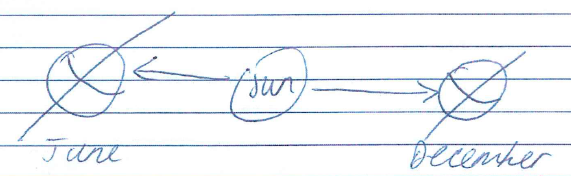 Sun
June
December